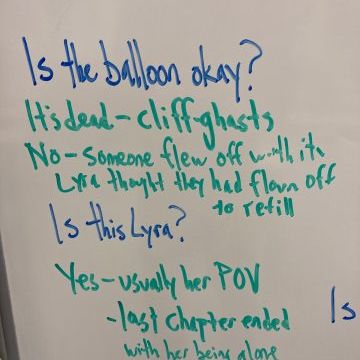 Is the balloon okay?
It's dead - cliff-ghasts
No - Someone flew off with it
Lyra thought they had flown off
to refill
Is this Lyra?
Yes - usually her POV
- last chapter ended
with her being alone
Is